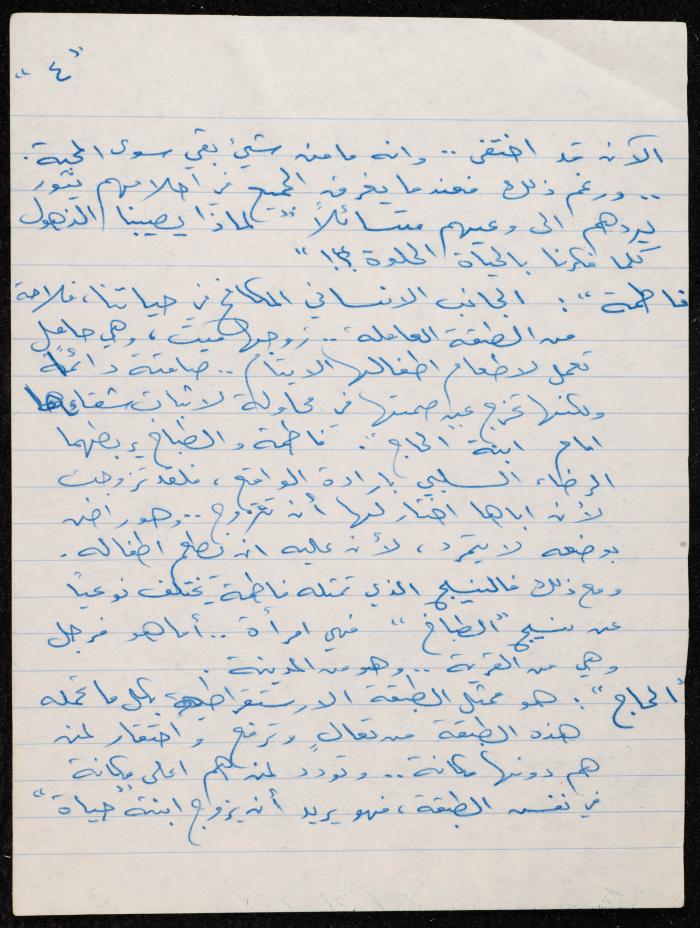 "٤"
الآن قد اختفى .. وانه ما من شيئ بقي سوى المحبة.
.. ورغم ذلك فعندما يغرق الجميع في احلامهم يثور
يردهم الى وعيهم متسائلاً "لماذا يصيبنا الذهول
كلما فكرنا بالحياة الحلوة ؟!"
فاطمة": الجانب الانساني المكافح في حياتنا، فلاحة
من الطبقة العاملة .. زوجها ميت، وهي حامل
تعمل لاطعام اطفالها الايتام .. صامتة دائمًا
ولكنها تخرج عن صمتها في محاولة لاثبات شقاءها
امام ابنة "الحاج". فاطمة والطباخ يربطهما
الرضاء السلبي بارادة الواقع، فلقد تزوجت
لأن اباها اختار لها أن تتزوج .. وهو راض
بوضعه لا يتمرد، لأن عليه ان يطعم اطفاله.
ومع ذلك فالنسيج الذي تمثله فاطمة يختلف نوعياً
عن نسيج "الطباخ" فهي امرأة .. أما هو فرجل
وهي من القرية .. وهو من المدينة.
"الحاج": هو ممثل الطبقة الارستقراطية بكل ما تحمله
هذه الطبقة من تعالٍ وترفع واحتقار لمن
هم دونها مكانة .. وتودد لمن هم اعلى مكانة
في نفس الطبقة، فهو يريد أن يزوج ابنته "حياة"